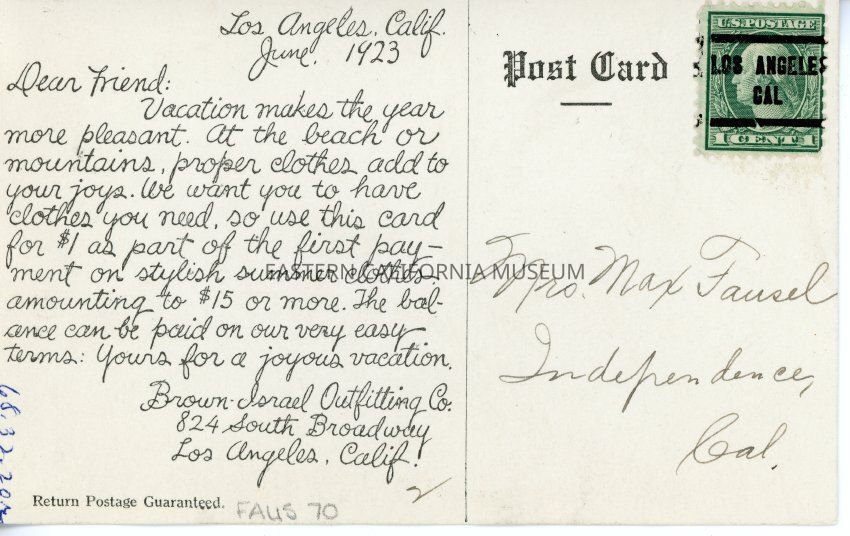 Los Angeles, Calif.
June, 1923
Dear Friend:
Vacation makes the year
more pleasant. At the beach or
mountains, proper clothes add to
your joys. We want you to have
clothes you need, so use this card
for $1 as part of the first pay-
ment on stylish summer clothes
amounting to $15 or more. The bal-
ance can be paid on our very easy
terms: Yours for a joyous vacation.
Brown-Israel Outfitting Co.
824 South Broadway
Los Angeles, Calif.
Return Postage Guaranteed.
FAUS 70
2
EASTERN CALIFORNIA MUSEUM
Post Card
U.S. POSTAGE
LOS ANGELES
CAL
1 CENT 1
Mrs. Max Fausel
Independence,
Cal.